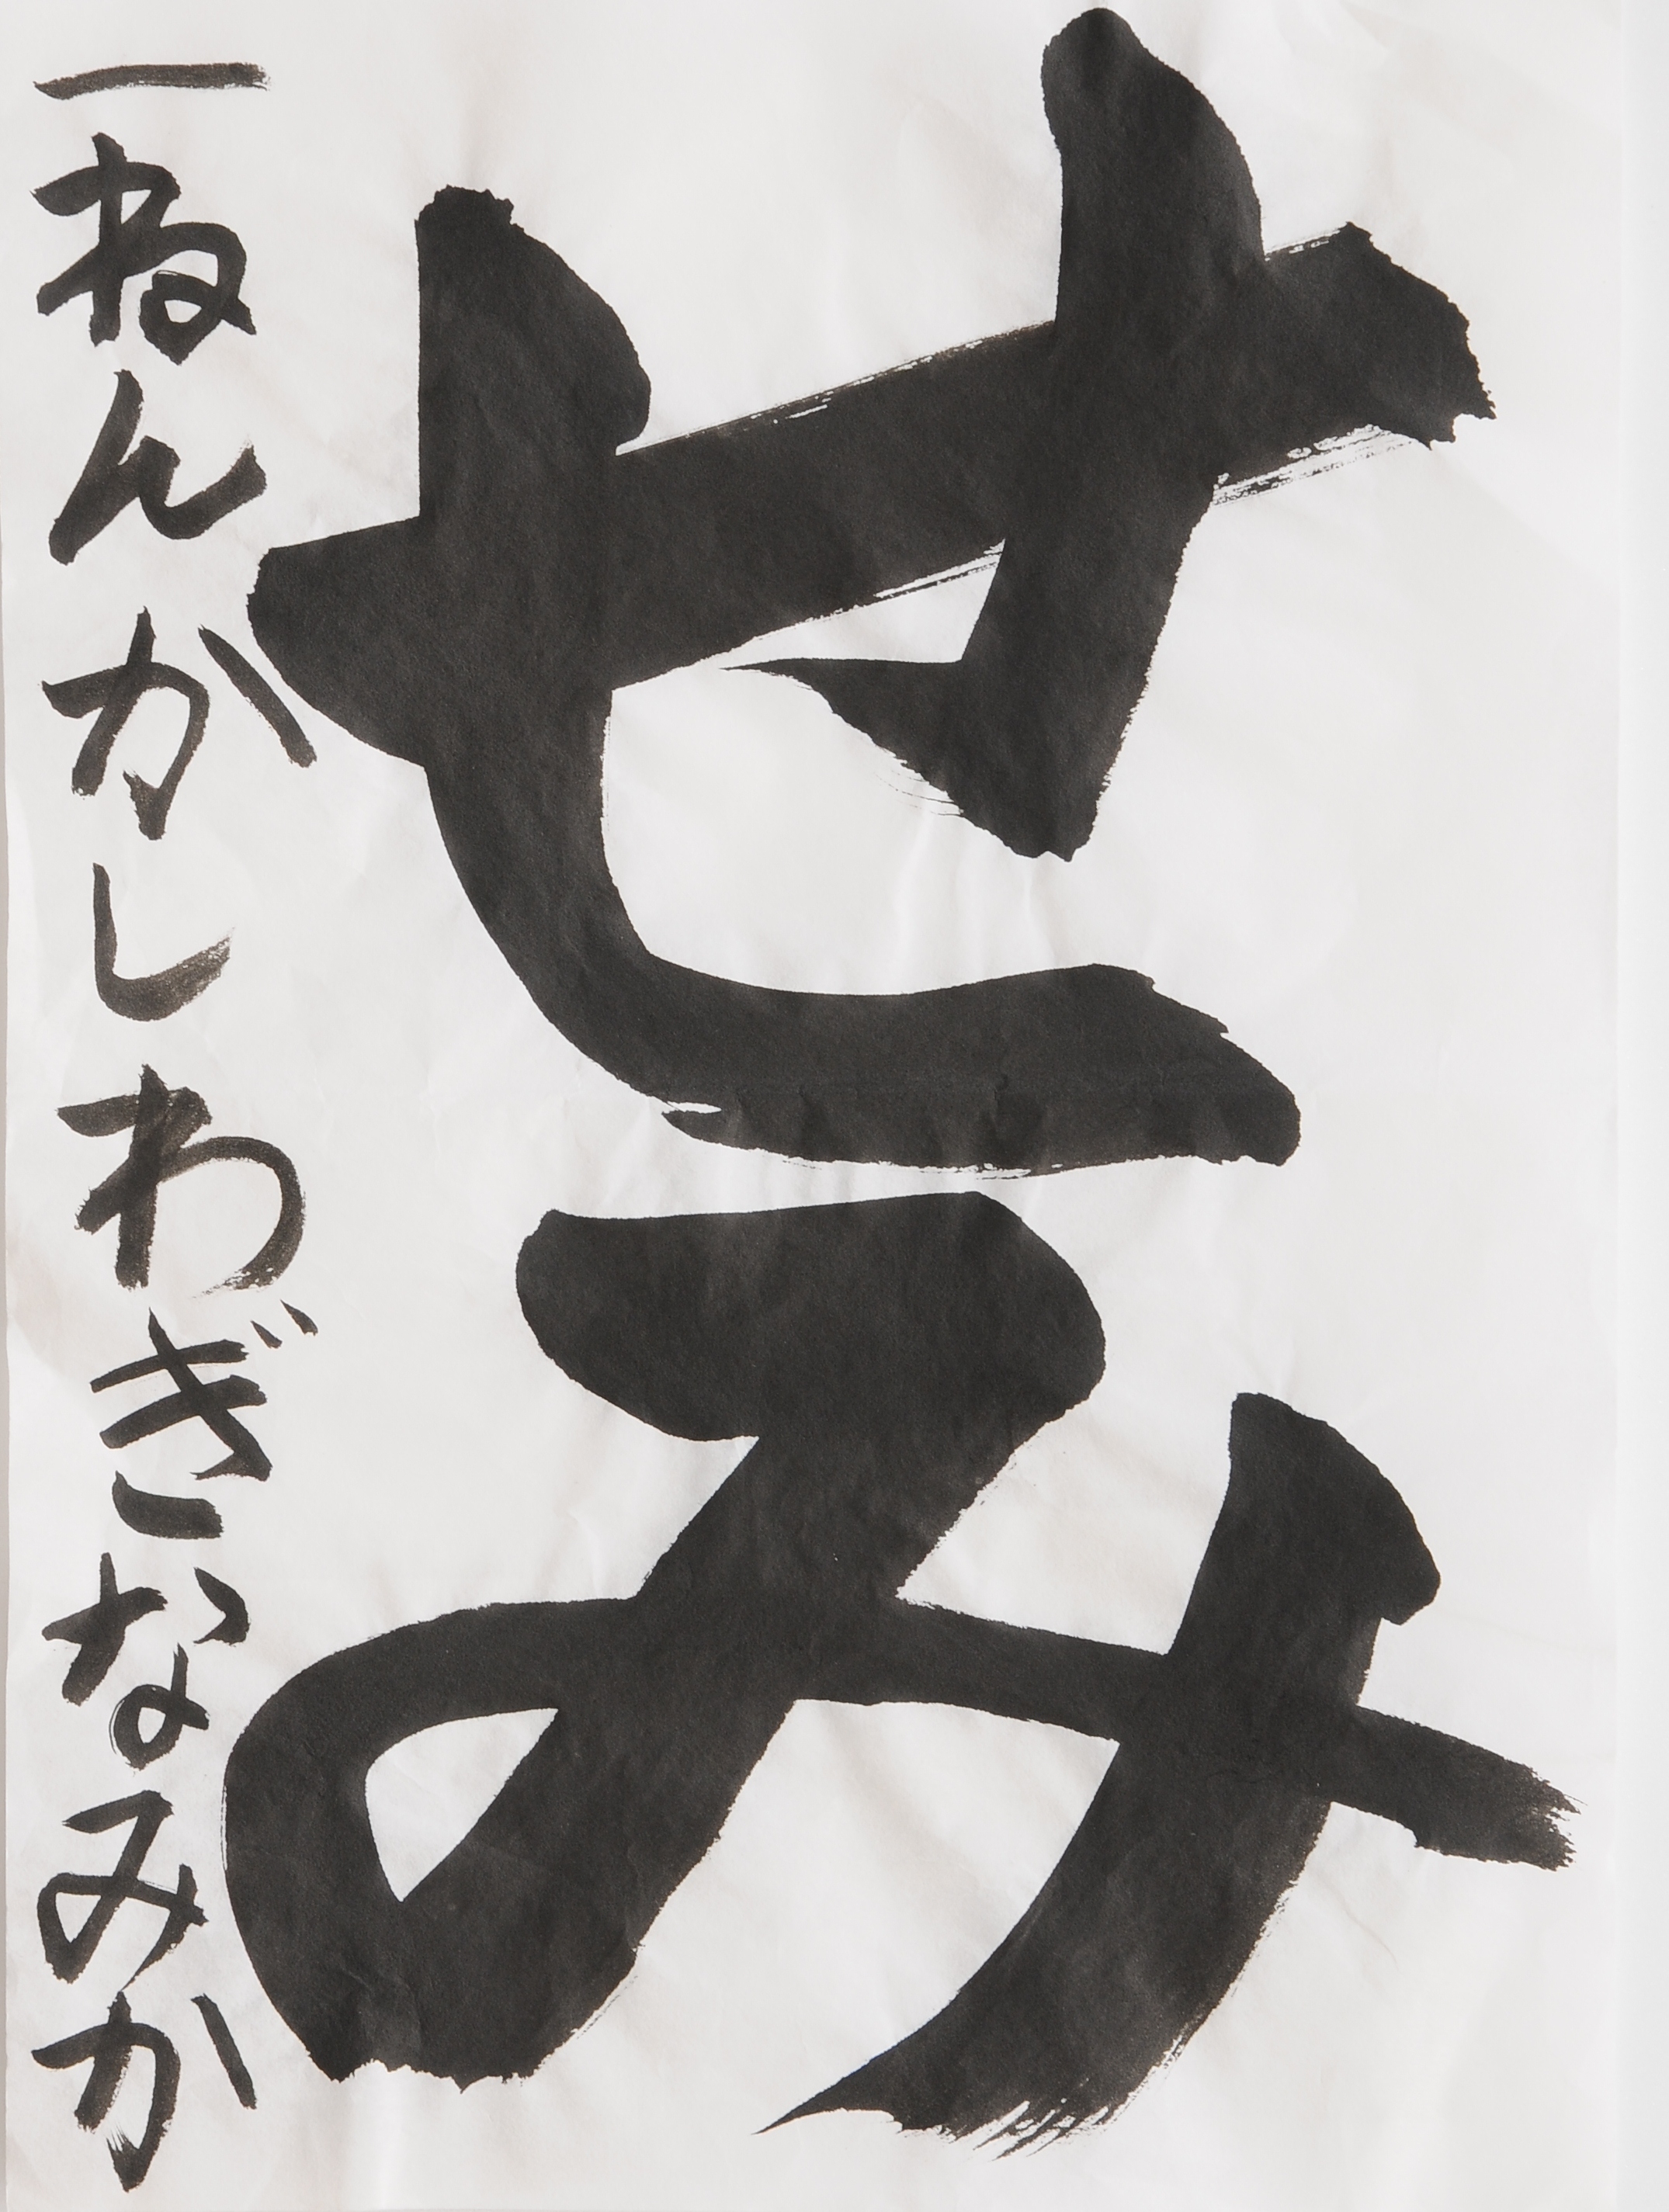 せみ
一ねんかしわぎなみか